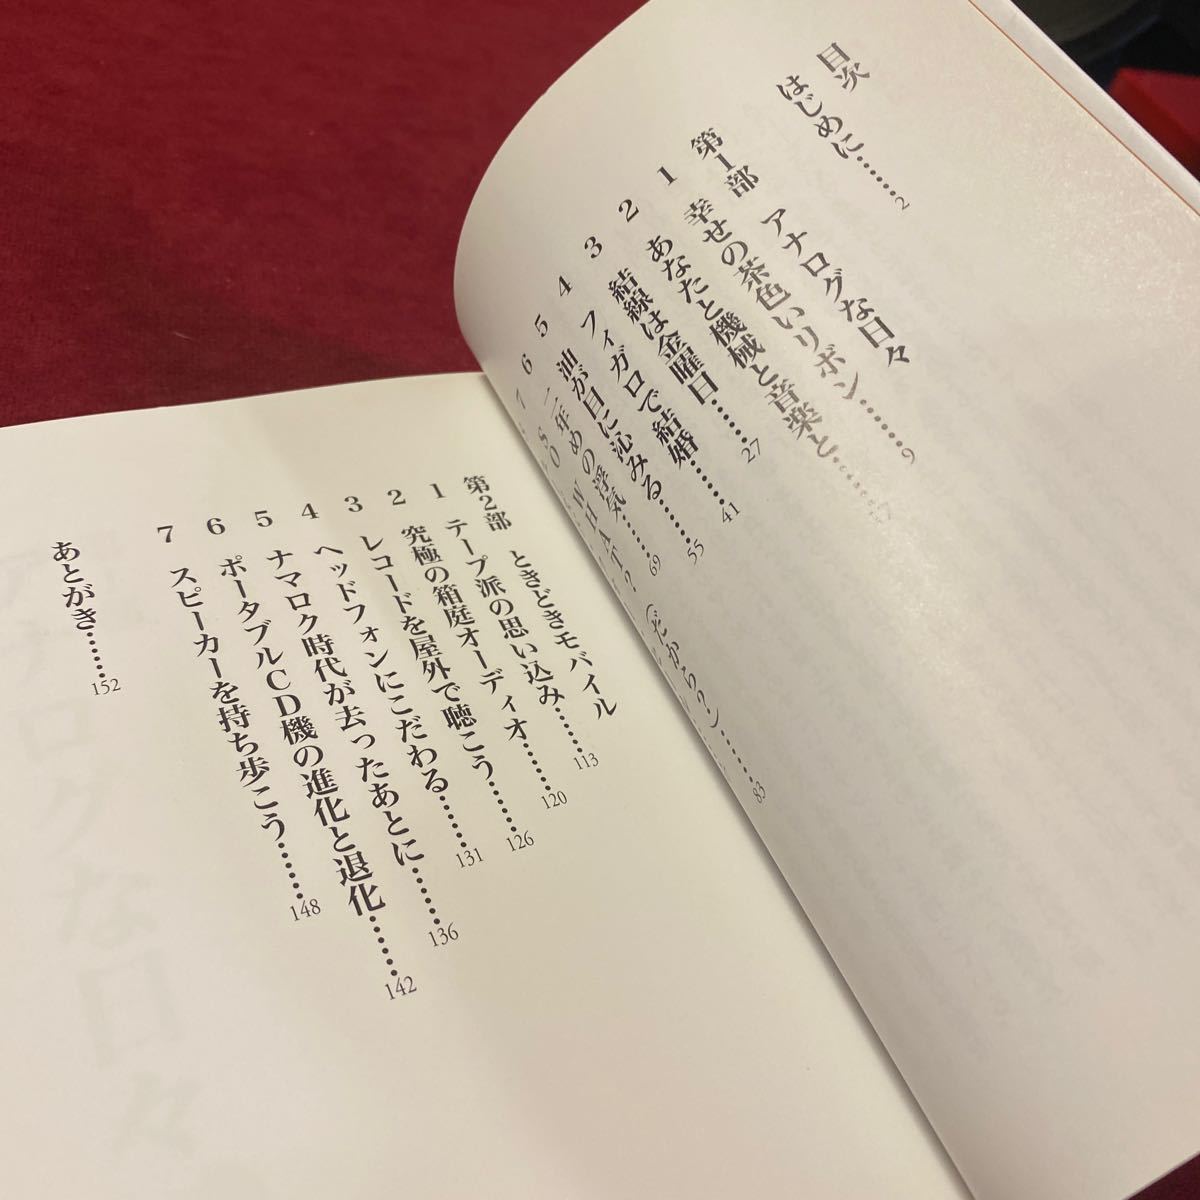 目次
はじめに……2
第1部 アナログな日々
1 幸せの茶色いリボン……9
2 あなたと機械と音楽と……17
3 結線は金曜日……27
4 フィガロで結婚……41
5 油が目に沁みる……55
6 二年めの浮気……69
7 SO WHAT?(だから?)……83
第2部 ときどきモバイル
1 テープ派の思い込み……113
2 究極の箱庭オーディオ……120
3 レコードを屋外で聴こう……126
4 ヘッドフォンにこだわる……131
5 ナマロク時代が去ったあとに……136
6 ポータブルCD機の進化と退化……142
7 スピーカーを持ち歩こう……148
あとがき……152